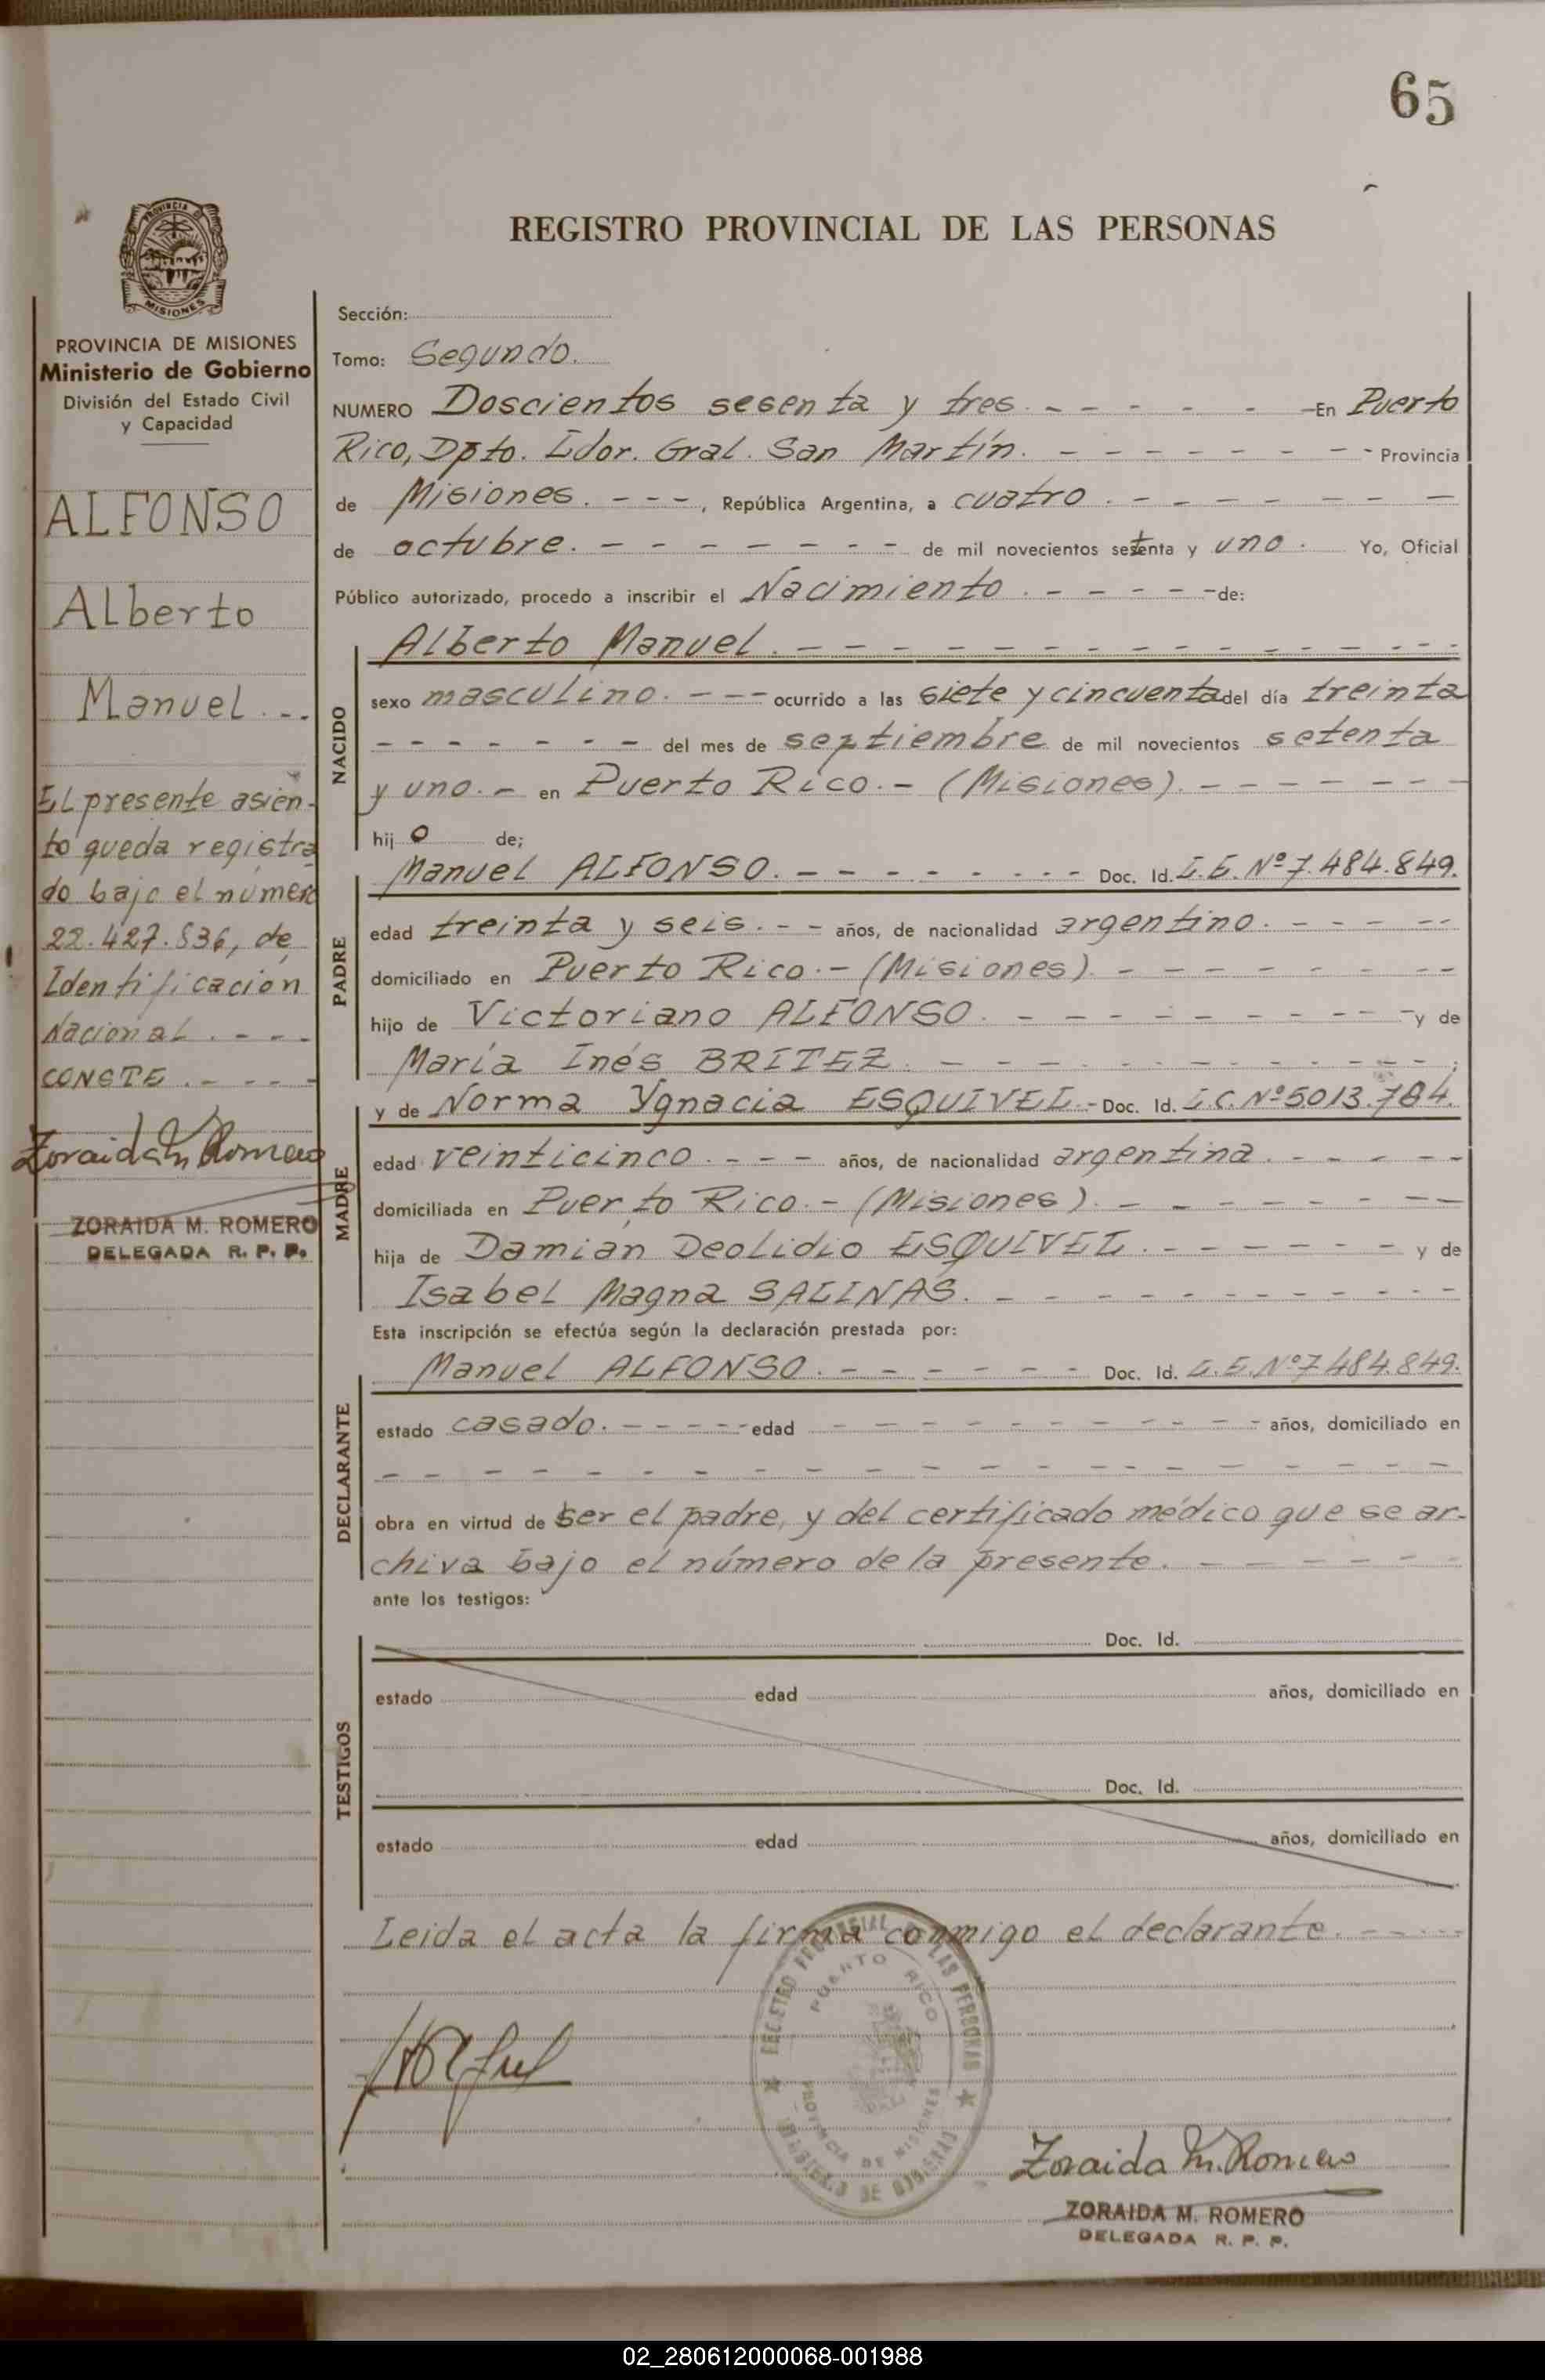 65
REGISTRO PROVINCIAL DE LAS PERSONAS
PROVINCIA
MISIONES
PROVINCIA DE MISIONES
Ministerio de Gobierno
División del Estado Civil
y Capacidad
ALFONSO
Alberto
Manuel . - .
El presente asien-
to queda registra
do bajo el número
22.427.836, de
Identificación
Nacional . - - -
CONSTE . - - - -
Zoraida M. Romero
ZORAIDA M. ROMERO
DELEGADA R. P. P.
Sección:
Tomo: Segundo.
NUMERO Doscientos sesenta y tres. - - - - - - En Puerto
Rico, Dpto. Ldor. Gral. San Martín. - - - - - - - - Provincia
de Misiones. - - -, República Argentina, a cuatro . - - - - - - -
de octubre. - - - - - - - de mil novecientos setenta y uno. Yo, Oficial
Público autorizado, procedo a inscribir el Nacimiento . - - - - - de:
NACIDO
Alberto Manuel. - - - - - - - - - - - - - -
sexo masculino. - - - ocurrido a las siete y cincuenta del día treinta
- - - - - - - del mes de septiembre de mil novecientos setenta
y uno. - en Puerto Rico. - (Misiones). - - - - - -
hij o de;
PADRE
Manuel ALFONSO. - - - - - - - - Doc. Id. L.E. Nº 7.484.849.
edad treinta y seis. - - años, de nacionalidad argentino. - - - - -
domiciliado en Puerto Rico. - (Misiones). - - - - - - - -
hijo de Victoriano ALFONSO. - - - - - - - - - y de
María Inés BRITEZ. - - - - - - - - - - - ;
MADRE
y de Norma Ygnacia ESQUIVEL. - Doc. Id. L.C. Nº 5013.784.
edad veinticinco. - - - años, de nacionalidad argentina. - - - - -
domiciliada en Puerto Rico. - (Misiones). - - - - - - - -
hija de Damian Deolidio ESQUIVEL. - - - - - - y de
Isabel Magna SALINAS. - - - - - - - - - - -
Esta inscripción se efectúa según la declaración prestada por:
DECLARANTE
Manuel ALFONSO. - - - - - - Doc. Id. L.E. Nº 7484.849.
estado casado. - - - - - edad - - - - - - - - - - años, domiciliado en
- - - - - - - - - - - - - - - - - - - -
obra en virtud de ser el padre, y del certificado médico que se ar-
chiva bajo el número de la presente. - - - - - -
ante los testigos:
TESTIGOS
Doc. Id.
estado edad años, domiciliado en
Doc. Id.
estado edad años, domiciliado en
Leida el acta la firma conmigo el declarante. - - - -
REGISTRO PROVINCIAL DE LAS PERSONAS
PUERTO RICO
PROVINCIA DE MISIONES
MINISTERIO DE GOBIERNO
Zoraida M. Romero
ZORAIDA M. ROMERO
DELEGADA R. P. P.
02_280612000068-001988